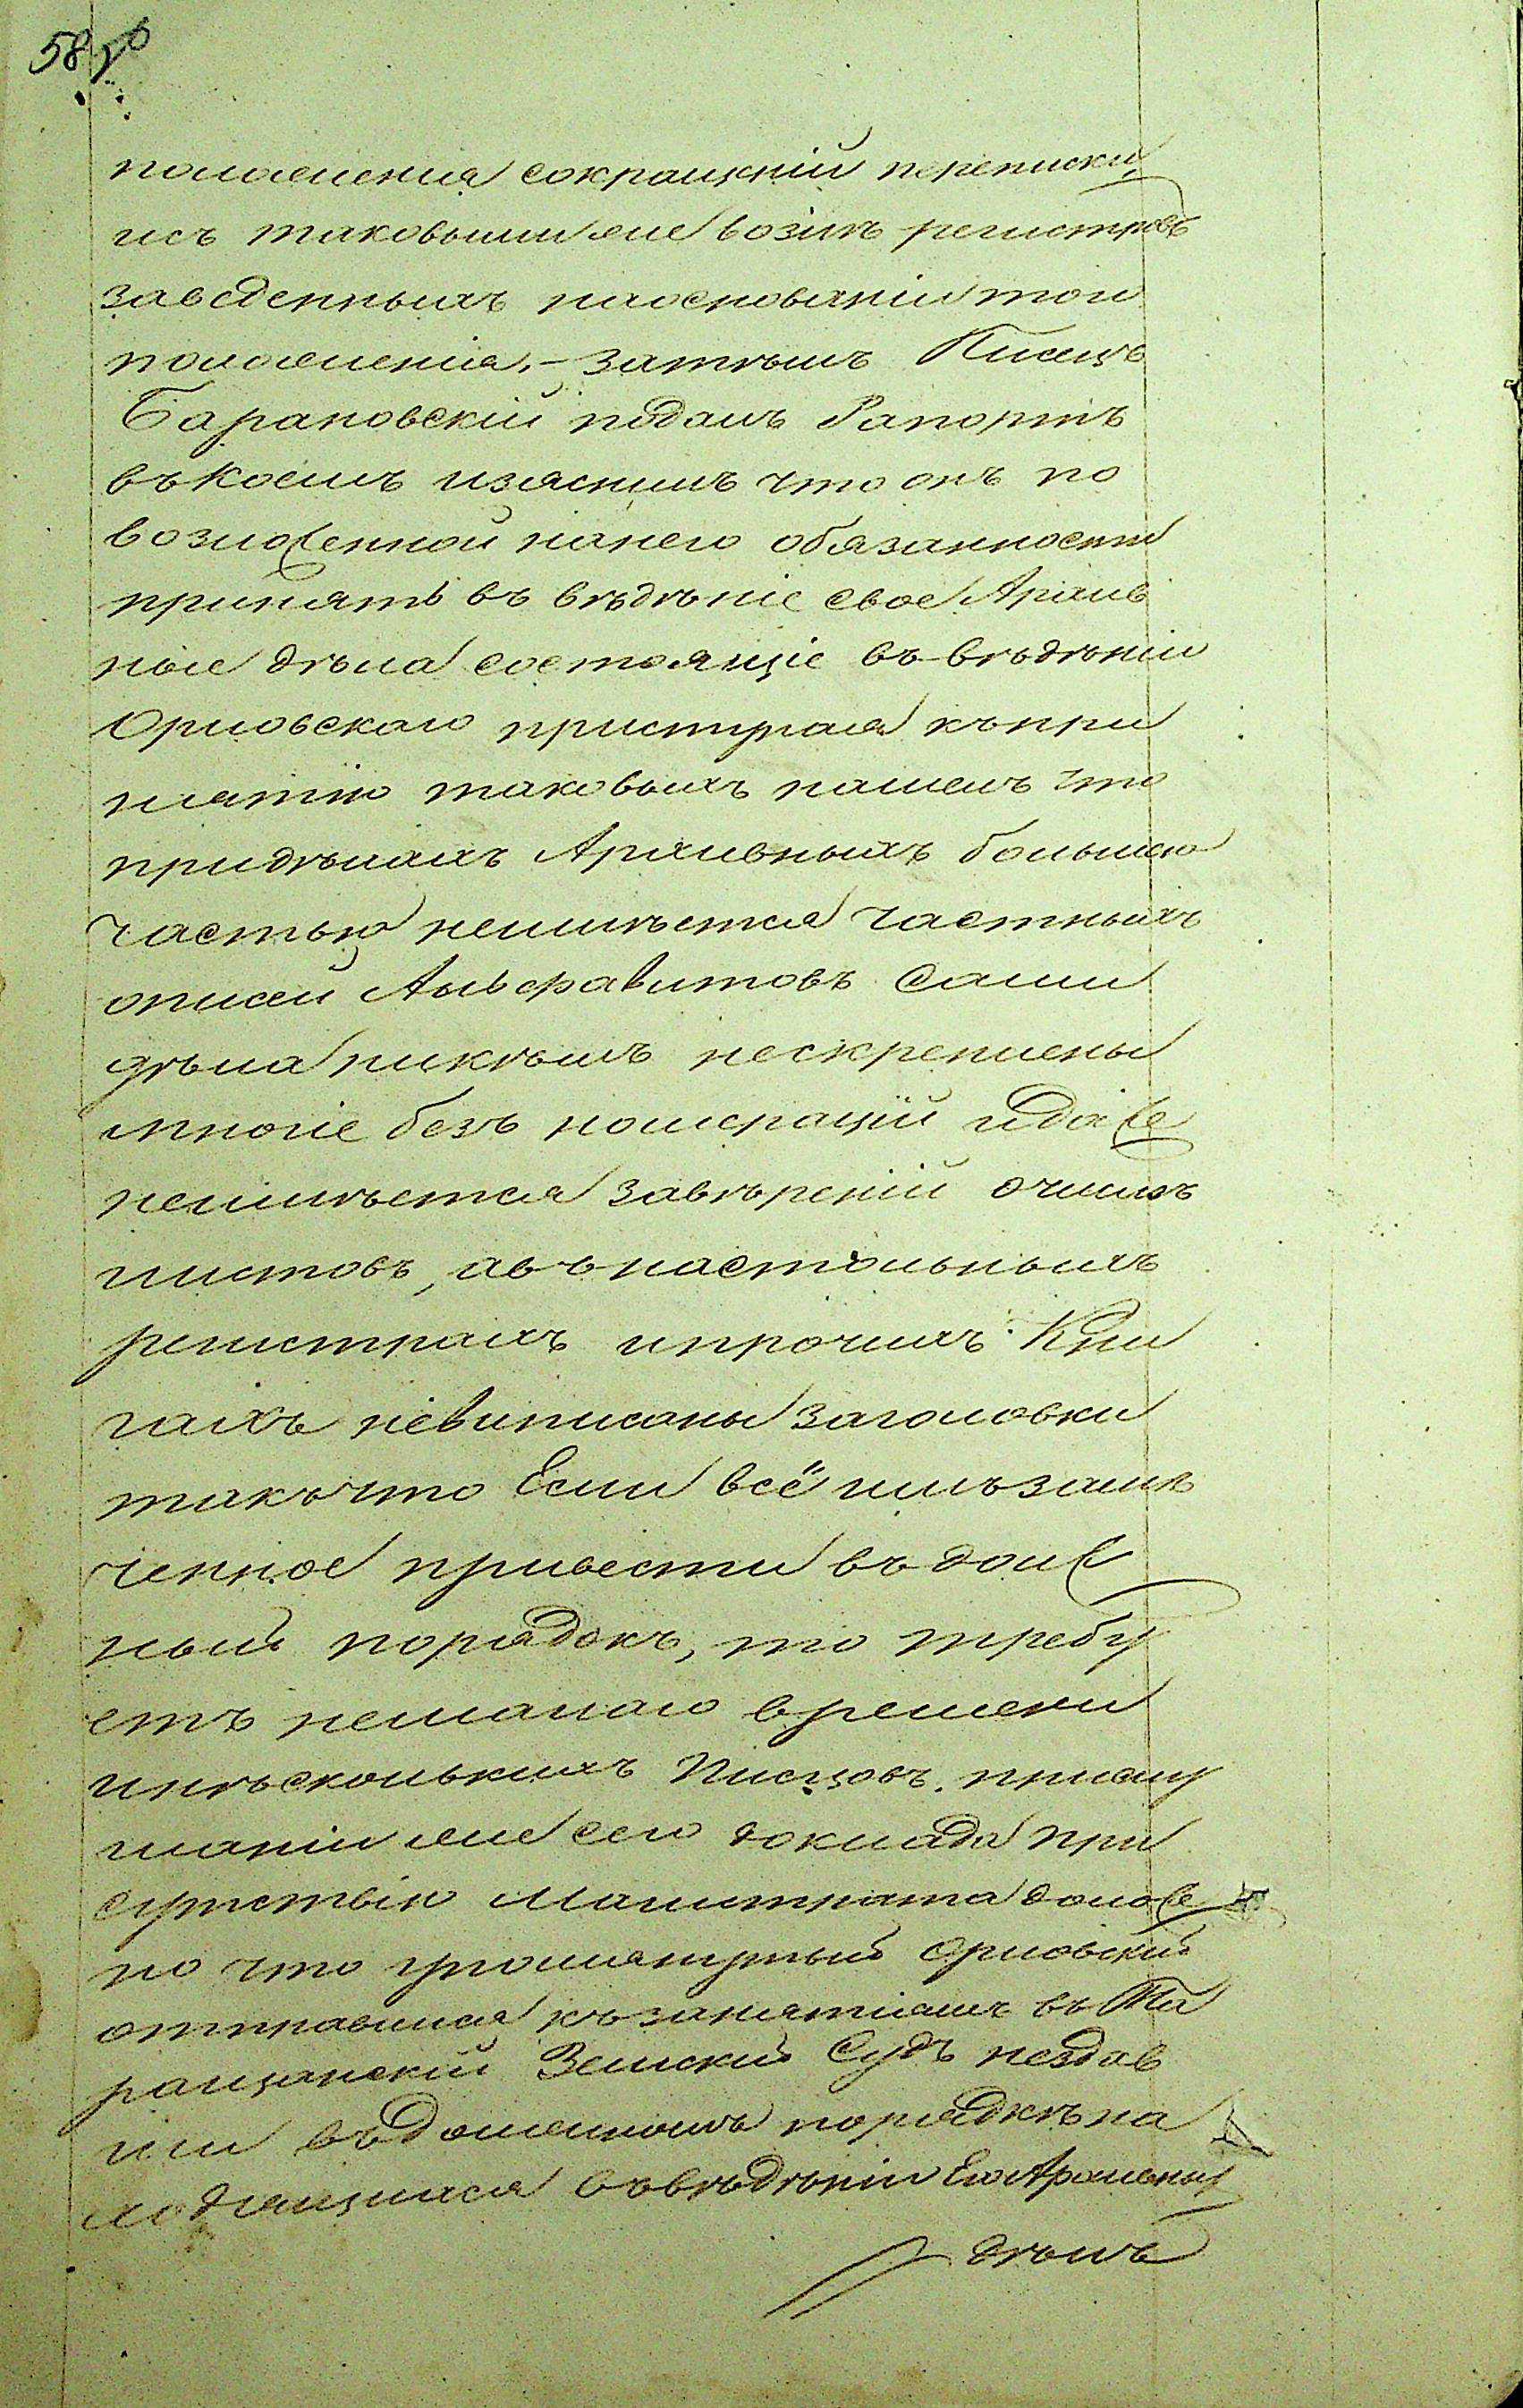 58
положения сокращеній переписки,
исъ таковыми же возимъ регистровъ
заведенныхъ наоснованіи того
положенія. – затѣмъ Писецъ
Барановскій подалъ Рапортъ
въкоемъ изяснилъ что онъ по
возложенной нанего обязанности
принять въ вѣдѣніе свое Архив
ные дѣла состоящіе въ вѣдѣніи
Орловскаго приступая къ при
нятію таковыхъ нашелъ что
придѣлахъ Архивныхъ большею
частью неимѣется частныхъ
описей Альфавитовъ Сами
дѣла никѣмъ нескреплены
многіе безъ номераціи идаже
неимѣется завѣреній очислѣ
листовъ, авънастольныхъ
регистрахъ ипрочихъ Кни
гахъ невиписаны заголовки
такъчто Если всё имъ замѣ
ченное привести въдолж
ный порядокъ, то требу
етъ немалаго времени
инѣсколькихъ Писцовъ. прислу
шаніи же сего доклада при
сутствію Магистрата доложе
но что упомянутый Орловскій
отправился къзанятіямъ въ Та
ращанскій Земскій Судъ нездав
ши въдолжномъ порядкѣ на
ходящихся въвѣдѣніи Его Архивныхъ
дѣлъ